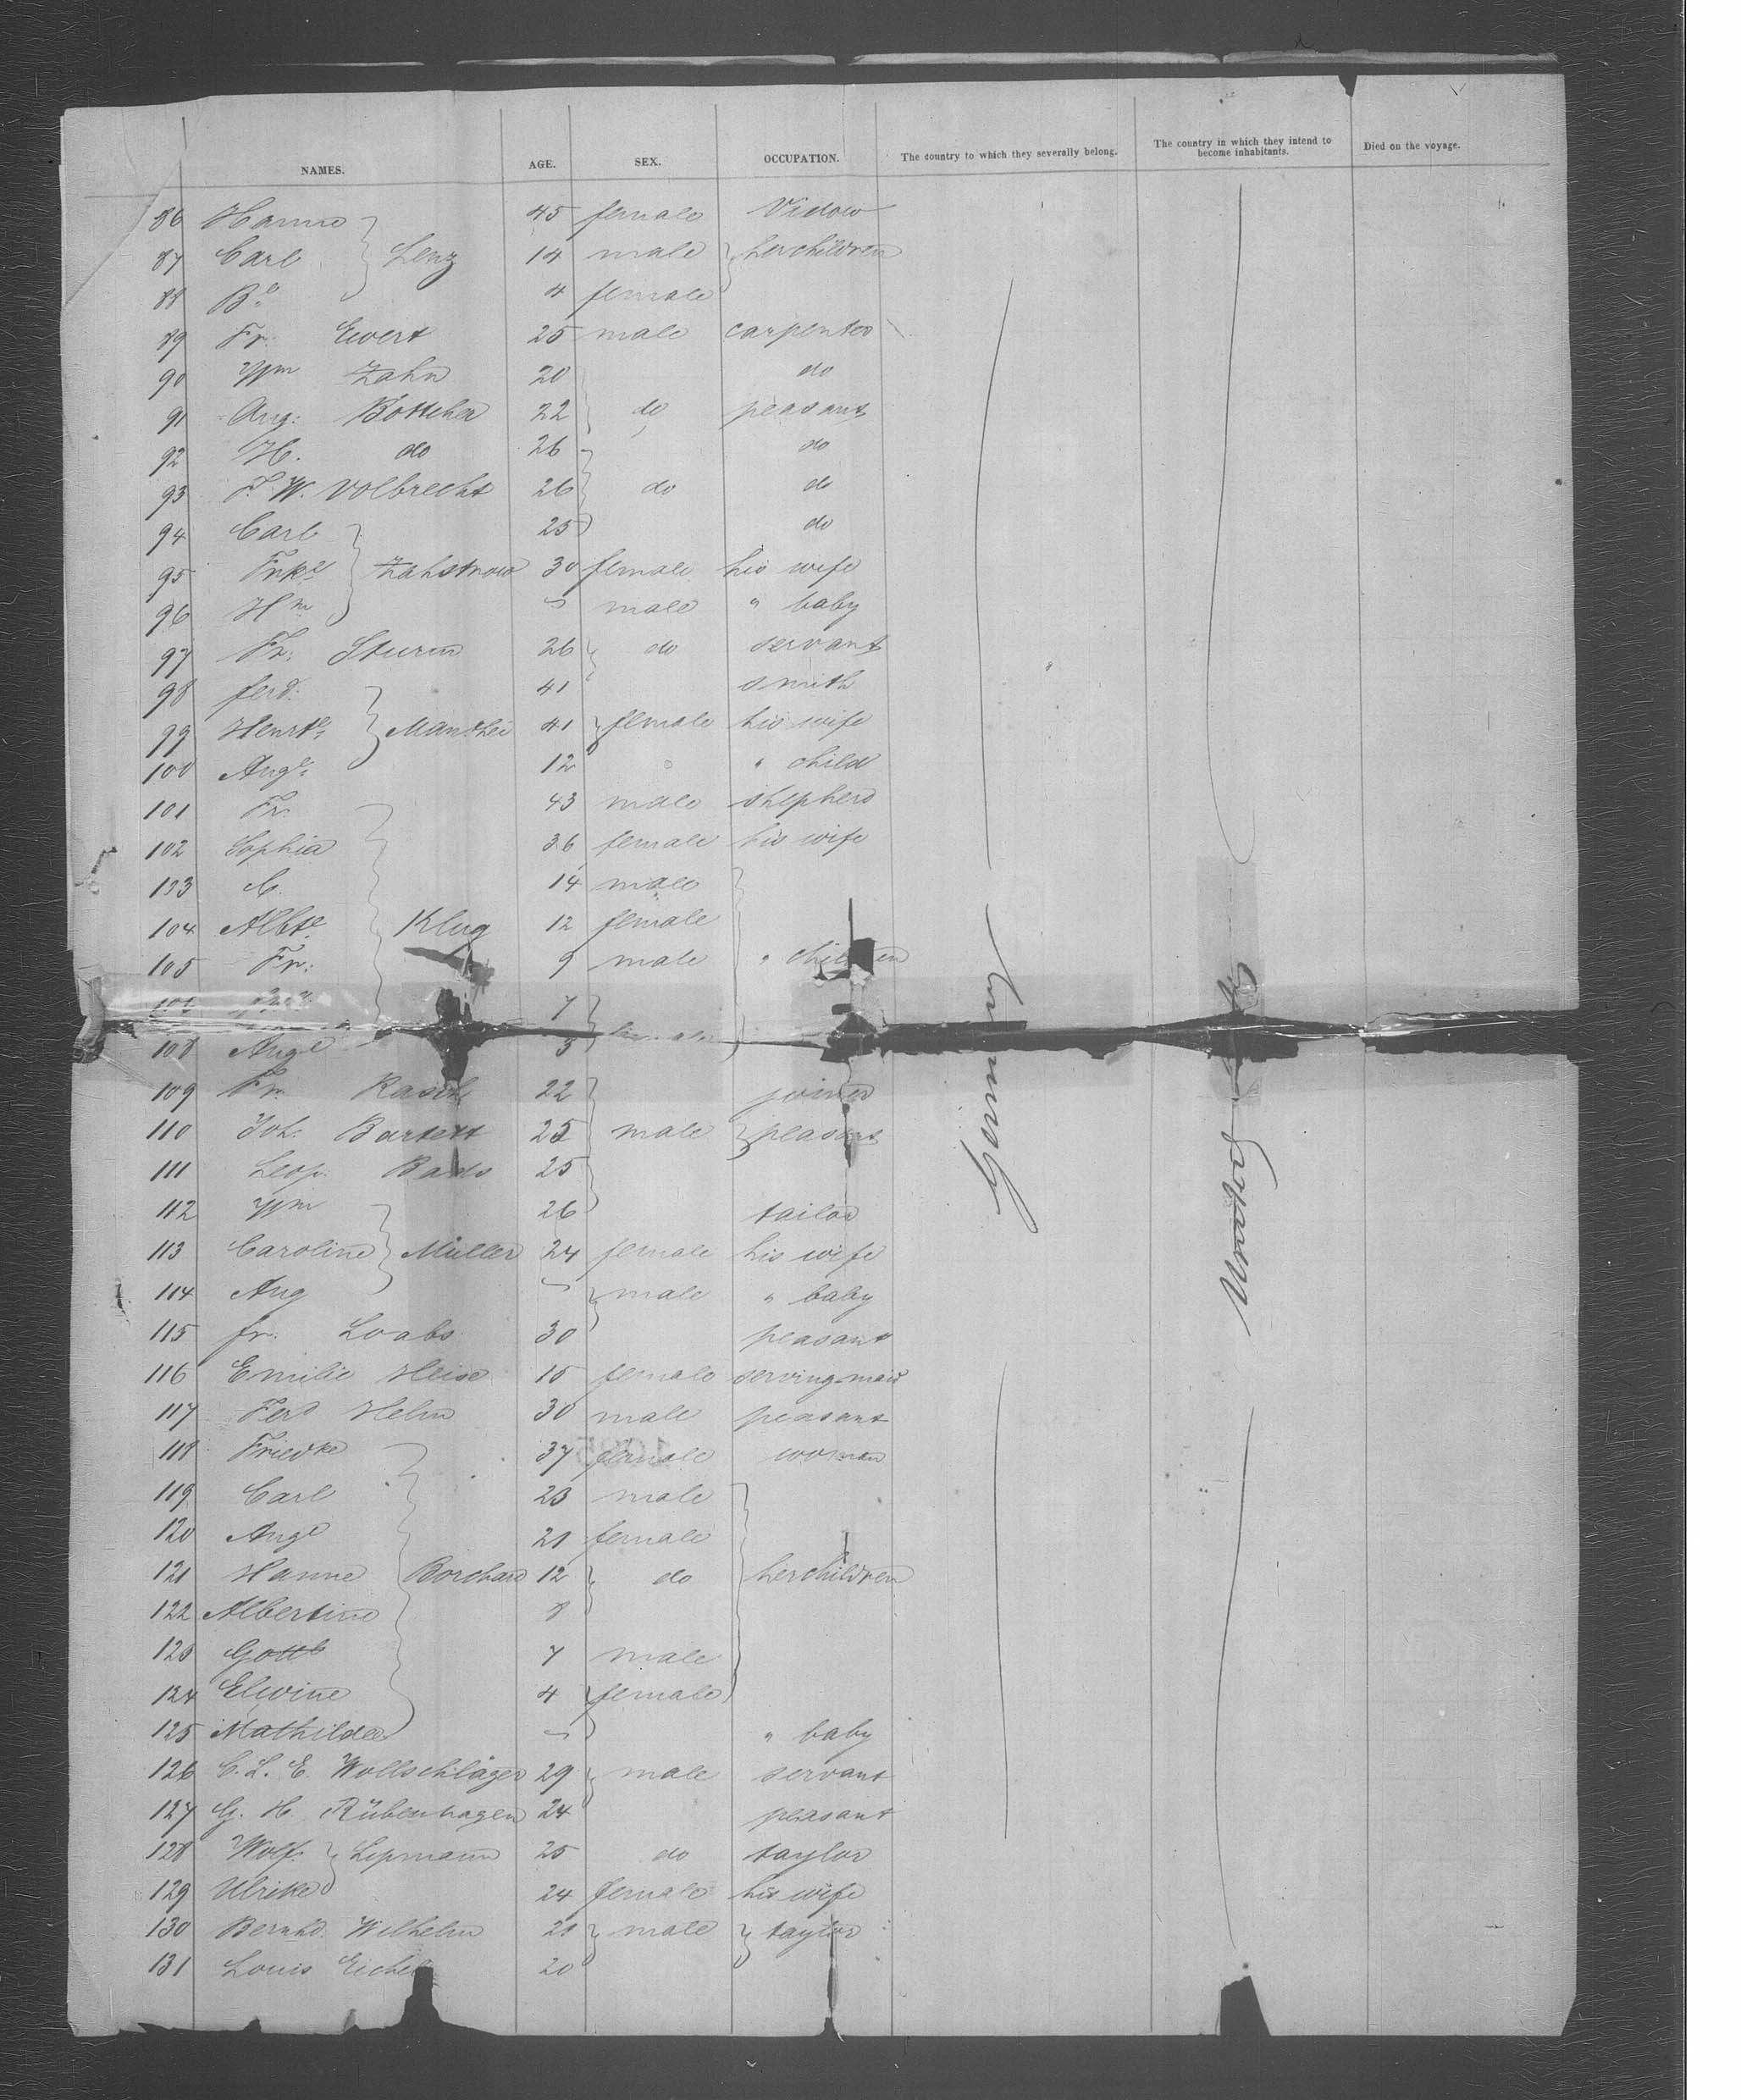 NAMES. AGE. SEX. OCCUPATION. The country to which they severally belong. The country in which they intend to become inhabitants. Died on the voyage.
86 Hanne 45 female Vidow
87 Carl Lenz 14 male her children
88 4 female
89 Fr. Ewert 25 male carpenter
90 Wm Zahn 20 do
91 Aug: Bottcher 22 do peasant
92 H. do 26 do
93 F. W. Volbrecht 26 do do
94 Carl 25 do
95 Zahstrow 30 female his wife
96 Hm male " baby
97 Fr: Sturm 26 do servant
98 ferd: 41 smith
99 Manthei 41 female his wife
100 Auge. 12 " child
101 Fr. 43 male shepherd
102 Sophia 36 female his wife
103 C. 14 male
104 Albte. Klug 12 female
105 Fr: 9 male " children
7
108 Auge 3
109 Fr. Rasch 22 joiner
110 Joh. 25 male peasant
111 Leop. 25
112 Wm 26 tailor
113 Caroline Müller 24 female his wife
114 Aug male " baby
115 fr. Loabs 30 peasant
116 Emilie Heise 15 female serving-maid
117 Ferd Helm 30 male peasant
118 Friedke 37 female woman
119 Carl 23 male
120 Auge 21 female
121 Hanne Borchard 12 do her children
122 Albertine 8
123 Gottb 7 male
124 Elwine 4 female
125 Mathilde " baby
126 C. L. E. Wollschläger 29 male servant
127 G. H. Rübenhagen 24 peasant
128 Wolf. Lipmann 25 do taylor
129 Ulrike 24 female his wife
130 Bernhd. Wilhelm 21 male taylor
131 Louis 20
Germany
United